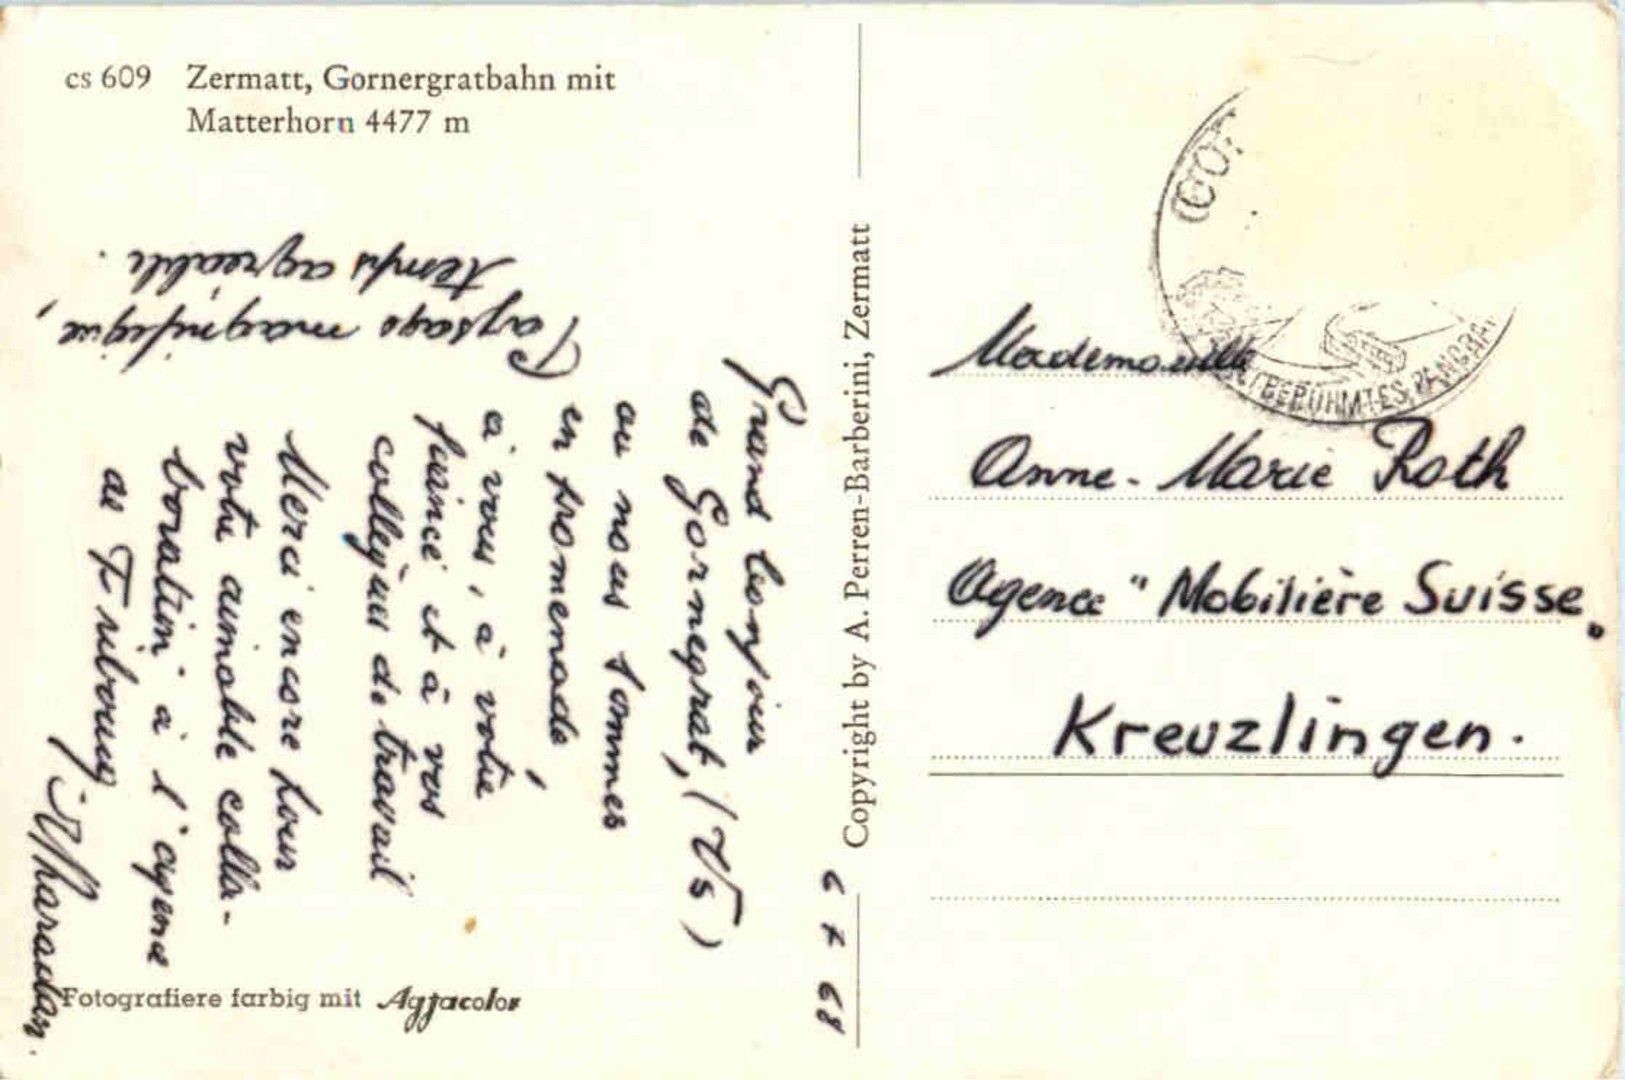 cs 609 Zermatt, Gornergratbahn mit
Matterhorn 4477 m
6 7 68
Grand bonjour
de Gornegrat, (VS)
où nous sommes
en promenade,
à vous, à votre
fiancé et à vos
collègues de travail
Merci encore pour
votre aimable colla-
boration à l'agence
de Fribourg.
Paysage magnifique,
temps agréable.
Fotografiere farbig mit Agfacolor
Copyright by A. Perren-Barberini, Zermatt
GOR
BERÜHMTES PANORA
Mademoiselle
Anne-Marie Roth
Agence "Mobilière Suisse"
Kreuzlingen.